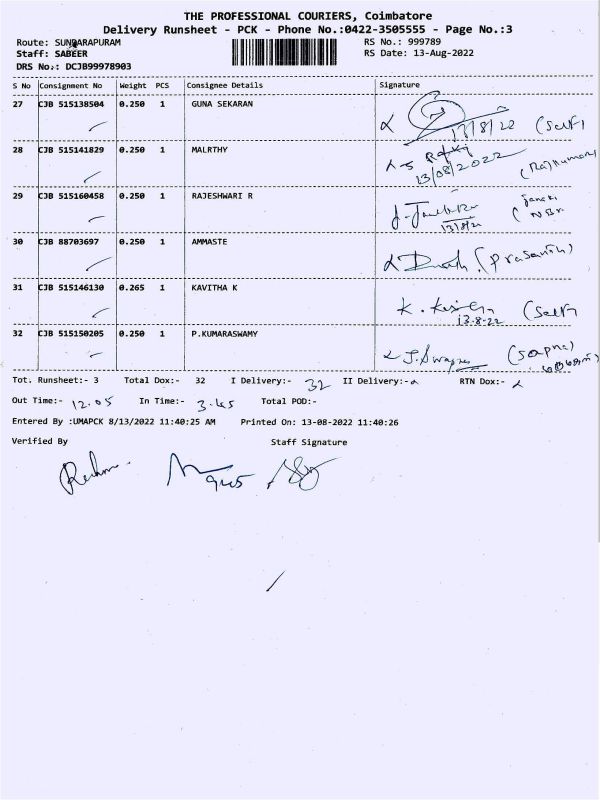 THE PROFESSIONAL COURIERS, Coimbatore
Delivery Runsheet - PCK - Phone No.:0422-3505555 - Page No.:3
Route: SUNDARAPURAM RS No.: 999789
Staff: SABEER RS Date: 13-Aug-2022
DRS No.: DCJB99978903
S No Consignment No Weight PCS Consignee Details Signature
27 CJB 515138504 0.250 1 GUNA SEKARAN
13/8/22 (Self)
28 CJB 515141829 0.250 1 MALRTHY
13/08/2022 (Rajkumar)
29 CJB 515160458 0.250 1 RAJESHWARI R
13/8/22 (Janaki NBr
30 CJB 88703697 0.250 1 AMMASTE
(Prasanth)
31 CJB 515146130 0.265 1 KAVITHA K
K. 13-8-22 (Self)
32 CJB 515150205 0.250 1 P.KUMARASWAMY
J. Swapna (Sapna)
Tot. Runsheet:- 3 Total Dox:- 32 I Delivery:- 32 II Delivery:- RTN Dox:-
Out Time:- 12.05 In Time:- 3.45 Total POD:-
Entered By :UMAPCK 8/13/2022 11:40:25 AM Printed On: 13-08-2022 11:40:26
Verified By Staff Signature